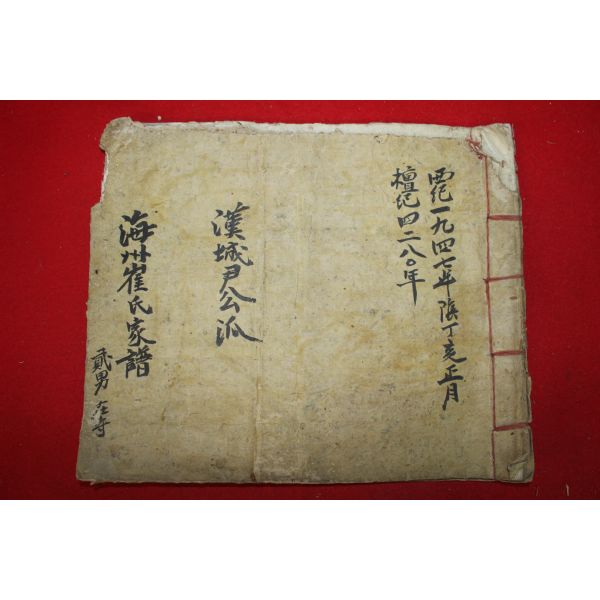 西紀一九四七年陰丁亥正月
檀紀四二八〇年
漢城尹公派
海州崔氏家譜
貳男